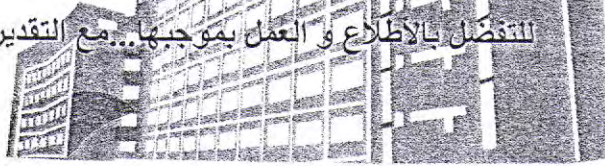 للتفضل بالأطلاع و العمل بموجبها...مع التقدير